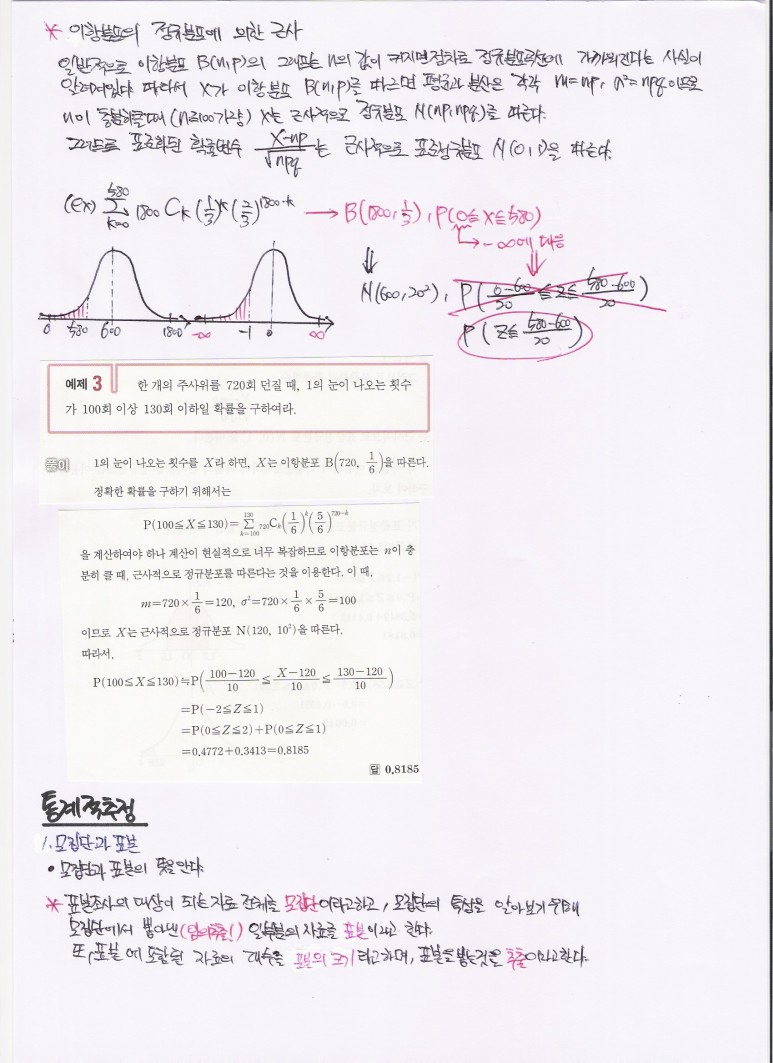 * 이항분포의 정규분포에 의한 근사
일반적으로 이항분포 B(n,p)의 그래프는 n의 값이 커지면 점차로 정규분포곡선에 가까워진다는 사실이
알려져있다. 따라서 X가 이항분포 B(n,p)를 따르면 평균과 분산은 각각 m=np, σ²=npq 이므로
n이 충분히클때 (n≧100가량) X는 근사적으로 정규분포 N(np,npq)를 따른다.
그러므로 표준화된 확률변수 (X-np)/√npq 는 근사적으로 표준정규분포 N(0,1)을 따른다.
(ex) 580 Σ k=0 1800Ck (1/3)^k (2/3)^1800-k → B(1800, 1/3), P(0≦X≦580)
→ -∞에 대응
N(600, 20²), P( (0-600)/20 ≦ Z ≦ (580-600)/20 )
P( Z≦ (580-600)/20 )
0 580 600 1800 -∞ -1 0 ∞
예제 3 한 개의 주사위를 720회 던질 때, 1의 눈이 나오는 횟수
가 100회 이상 130회 이하일 확률을 구하여라.
풀이 1의 눈이 나오는 횟수를 X라 하면, X는 이항분포 B(720, 1/6)을 따른다.
정확한 확률을 구하기 위해서는
P(100≦X≦130)= 130 Σ k=100 720Ck (1/6)^k (5/6)^720-k
을 계산하여야 하나 계산이 현실적으로 너무 복잡하므로 이항분포는 n이 충
분히 클 때, 근사적으로 정규분포를 따른다는 것을 이용한다. 이 때,
m=720×1/6=120, σ²=720×1/6×5/6=100
이므로 X는 근사적으로 정규분포 N(120, 10²)을 따른다.
따라서,
P(100≦X≦130)≒P( (100-120)/10 ≦ (X-120)/10 ≦ (130-120)/10 )
=P(-2≦Z≦1)
=P(0≦Z≦2)+P(0≦Z≦1)
=0.4772+0.3413=0.8185
답 0.8185
통계적추정
1. 모집단과 표본
• 모집단과 표본의 뜻을 안다.
* 표본조사의 대상이 되는 자료 전체를 모집단이라고하고, 모집단의 특성을 알아보기 위해
모집단에서 뽑아낸 (임의추출!) 일부분의 자료를 표본이라고 한다.
또, 표본에 포함된 자료의 개수를 표본의 크기라고하며, 표본을 뽑는것을 추출이라고한다.